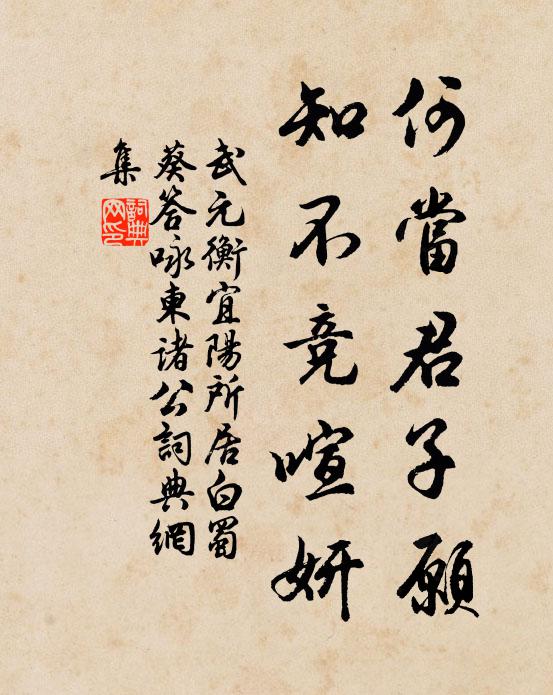 何當君子願
知不竞喧妍
武元衡宜陽所居白蜀
葵答咏東諸公詞典網
集
詞典網印